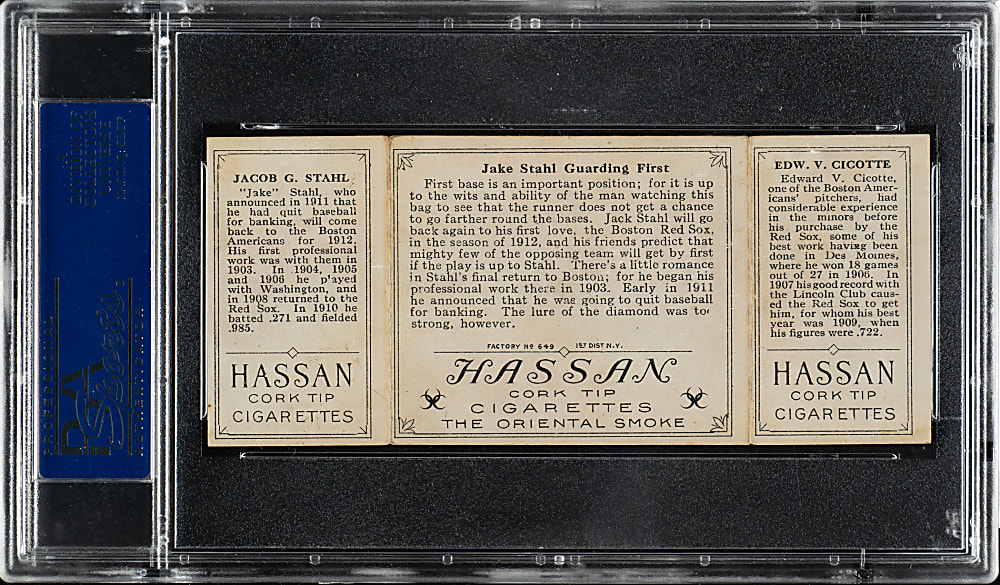 JACOB G. STAHL
"Jake" Stahl, who
announced in 1911 that
he had quit baseball
for banking, will come
back to the Boston
Americans for 1912.
His first professional
work was with them in
1903. In 1904, 1905
and 1906 he played
with Washington, and
in 1908 returned to the
Red Sox. In 1910 he
batted .271 and fielded
.985.
HASSAN
CORK TIP
CIGARETTES
Jake Stahl Guarding First
First base is an important position; for it is up
to the wits and ability of the man watching this
bag to see that the runner does not get a chance
to go farther round the bases. Jack Stahl will go
back again to his first love, the Boston Red Sox,
in the season of 1912, and his friends predict that
mighty few of the opposing team will get by first
if the play is up to Stahl. There's a little romance
in Stahl's final return to Boston; for he began his
professional work there in 1903. Early in 1911
he announced that he was going to quit baseball
for banking. The lure of the diamond was too
strong, however.
FACTORY Nº 649 1ST DIST N.Y.
HASSAN
CORK TIP
CIGARETTES
THE ORIENTAL SMOKE
EDW. V. CICOTTE
Edward V. Cicotte,
one of the Boston Amer-
icans' pitchers, had
considerable experience
in the minors before
his purchase by the
Red Sox, some of his
best work having been
done in Des Moines,
where he won 18 games
out of 27 in 1906. In
1907 his good record with
the Lincoln Club caus-
ed the Red Sox to get
him, for whom his best
year was 1909, when
his figures were .722.
HASSAN
CORK TIP
CIGARETTES
PROFESSIONAL
PSA
AUTHENTICATOR